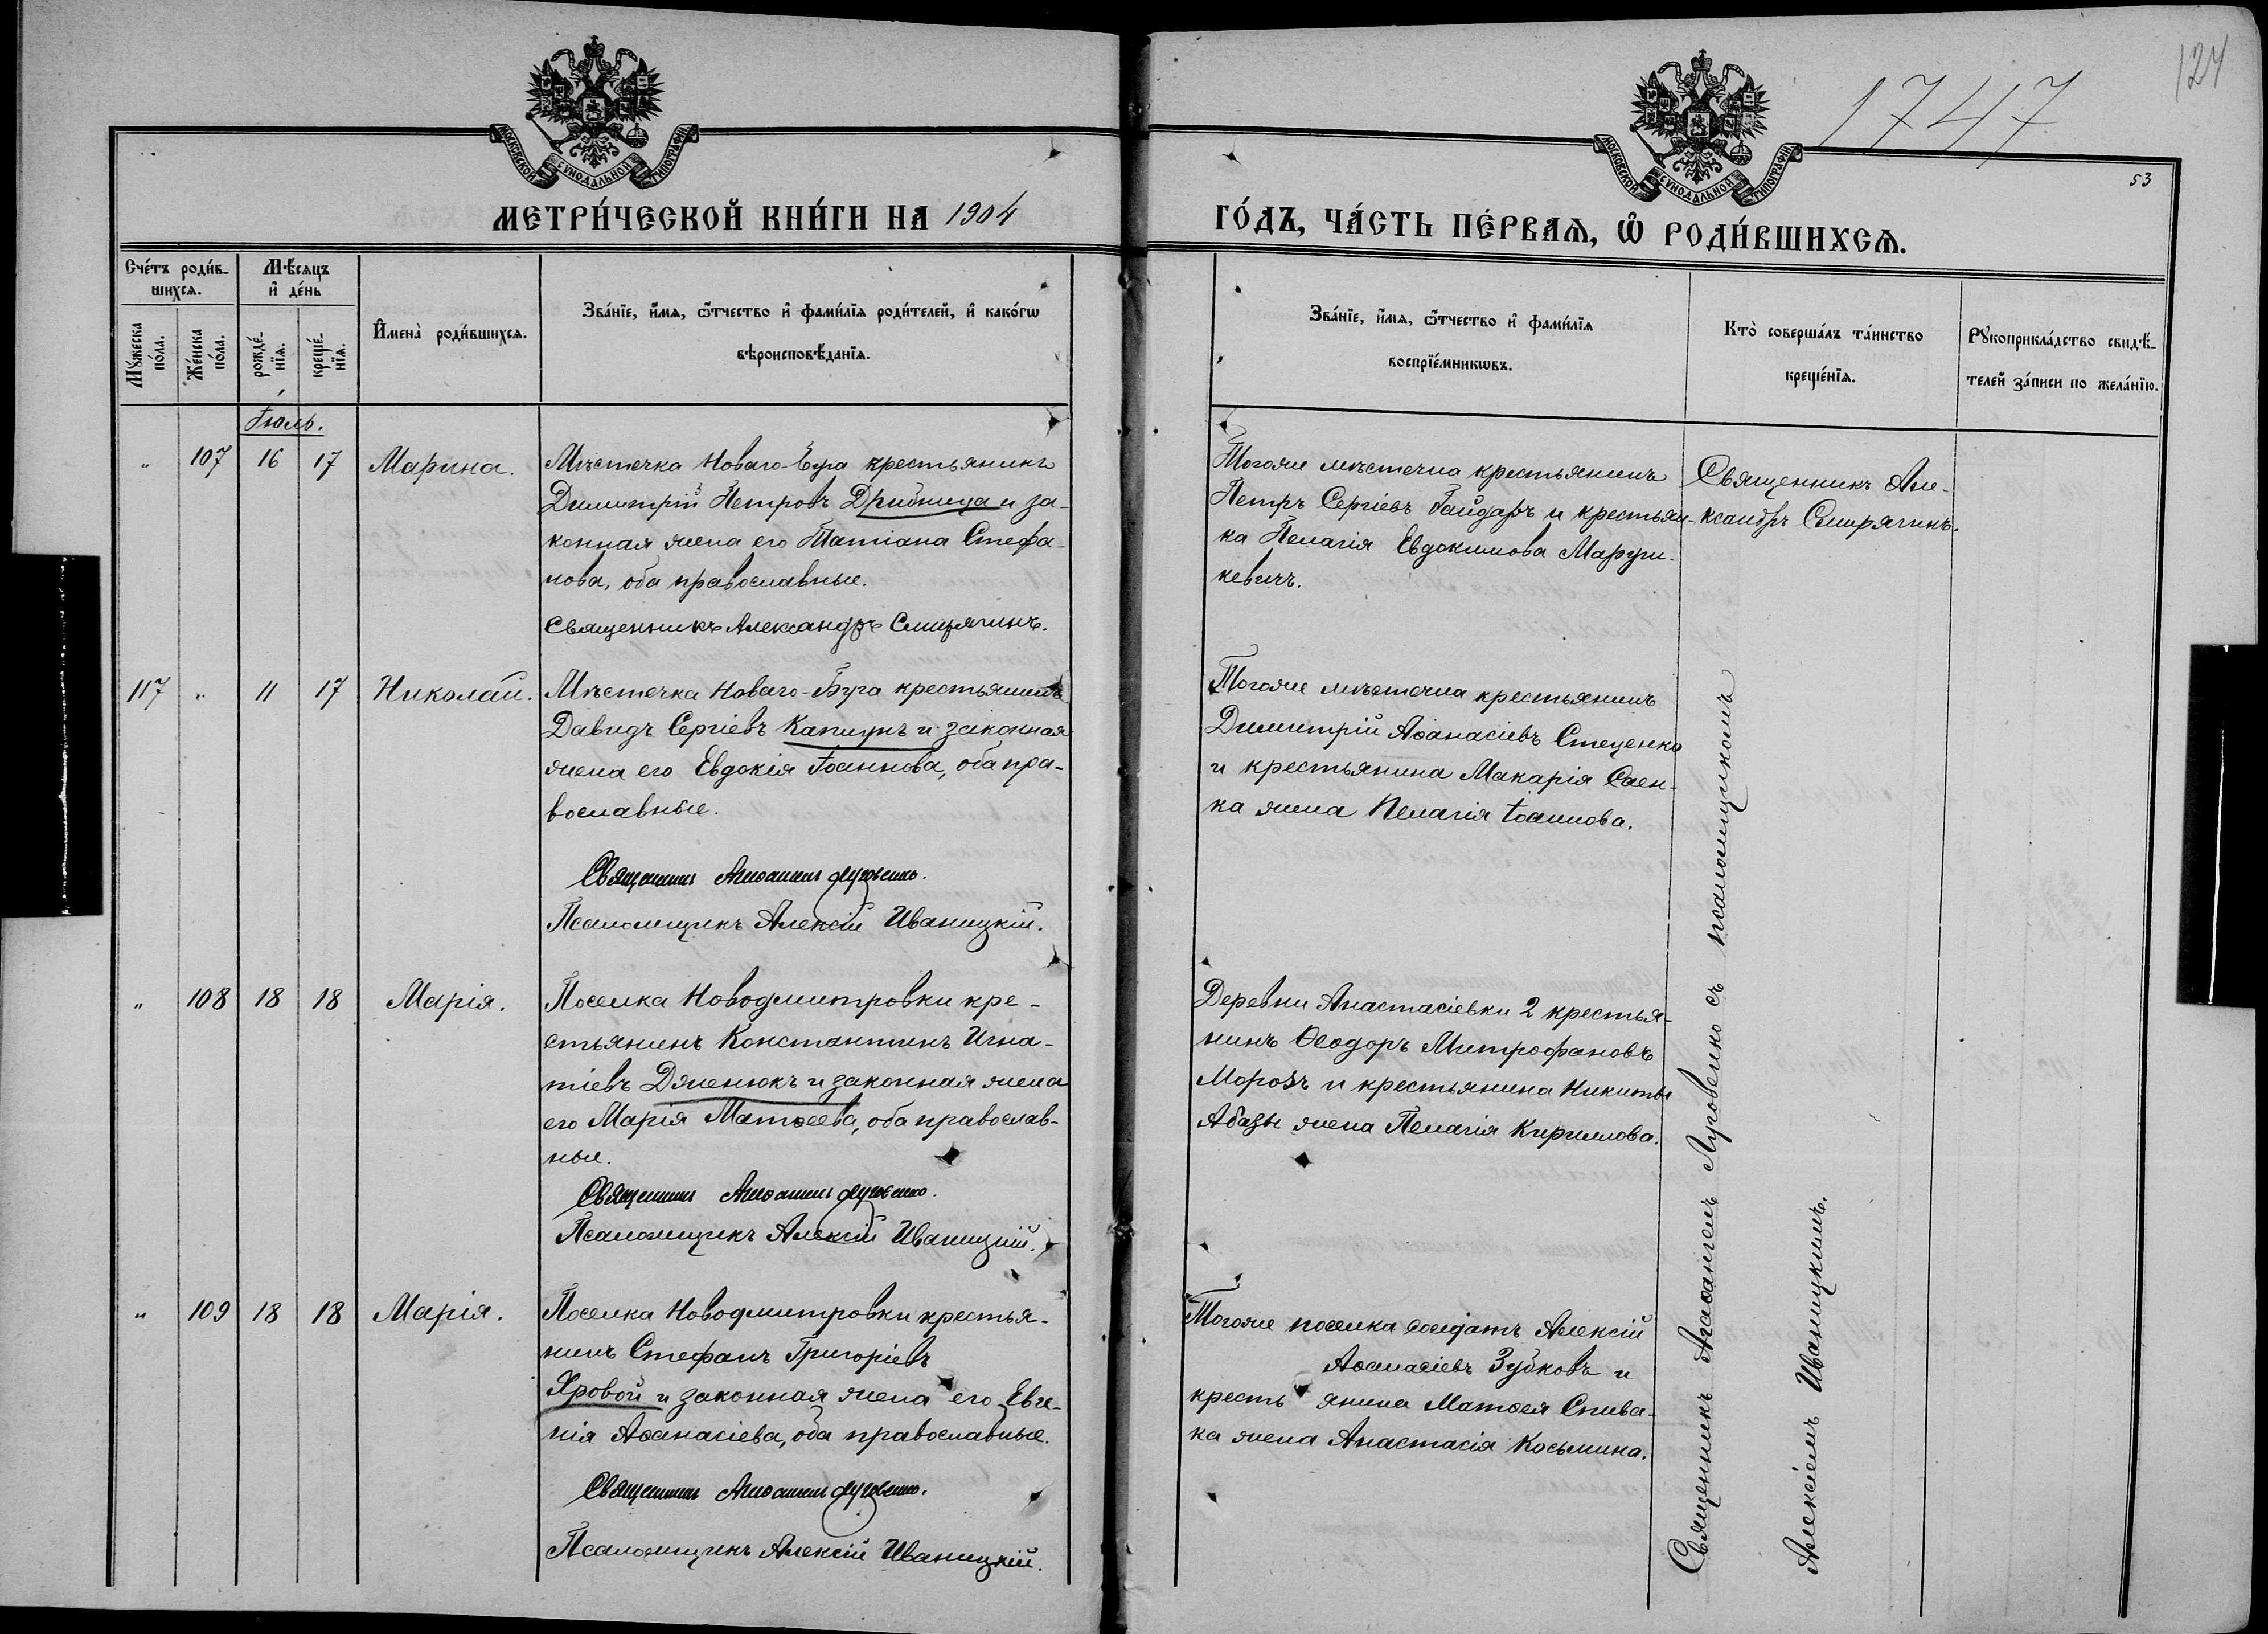 1747
124
53
МОСКОВСКОЙ СѴНОДАЛЬНОЙ ТИПОГРАФІИ
МОСКОВСКОЙ СѴНОДАЛЬНОЙ ТИПОГРАФІИ
МЕТРИ́ЧЕСКОЙ КНИ́ГИ НА 1904
ГО́ДЪ, ЧА́СТЬ ПЕ́РВАѦ, Ѡ҆ РОДИ́ВШИХСѦ.
Сче́тъ роди́в-
шихсѧ.
Мѣ́сѧцъ
и҆ де́нь
Мꙋ́жеска
по́ла.
Же́нска
по́ла.
рожде́-
нїѧ.
креще́-
нїѧ.
И҆мена̀ роди́вшихсѧ.
Зва́нїе, и҆́мѧ, ѻ҆́тчество и҆ фами́лїѧ роди́телей, и҆ како́гѡ
вѣроисповѣ́данїѧ.
Зва́нїе, и҆́мѧ, ѻ҆́тчество и҆ фами́лїѧ
воспрїе́мникѡвъ.
Кто̀ соверша́лъ та́инство
креще́нїѧ.
Рꙋкоприкла́дство свидѣ́-
телей за́писи по жела́нїю.
Іюль.
" 107 16 17 Марина.
Мѣстечка Новаго-Буга крестьянинъ
Димитрій Петровъ Дрибница и за-
конная жена его Татіана Стефа-
нова, оба православные.
Священникъ Александръ Смирягинъ.
Тогоже мѣстечка крестьянинъ
Петръ Сергіевъ Гайдаръ и крестьян-
ка Пелагія Евдокимова Маруш-
кевичъ.
Священникъ Але-
ксандръ Смирягинъ.
117 " 11 17 Николай.
Мѣстечка Новаго-Буга крестьянинъ
Давидъ Сергіевъ Капшукъ и законная
жена его Евдокія Іоаннова, оба пра-
вославные.
Священникъ Агаѳангелъ Луговенко.
Псаломщикъ Алексій Иваницкій.
Тогоже мѣстечка крестьянинъ
Димитрій Аѳанасіевъ Стеценко
и крестьянина Макарія Саен-
ка жена Пелагія Іоаннова.
" 108 18 18 Марія.
Поселка Новодмитровки кре-
стьянинъ Константинъ Игна-
тіевъ Дженюкъ и законная жена
его Марія Матѳеева, оба православ-
ные.
Священникъ Агаѳангелъ Луговенко.
Псаломщикъ Алексій Иваницкій.
Деревни Анастасіевки 2 крестья-
нинъ Ѳеодоръ Митрофановъ
Морозъ и крестьянина Никиты
Абазы жена Пелагія Кириллова.
" 109 18 18 Марія.
Поселка Новодмитровки крестья-
нинъ Стефанъ Григоріевъ
Яровой и законная жена его Евге-
нія Аѳанасіева, оба православные.
Священникъ Агаѳангелъ Луговенко.
Псаломщикъ Алексій Иваницкій.
Тогоже поселка солдатъ Алексій
Аѳанасіевъ Зубковъ и
крестьянина Матѳея Спива-
ка жена Анастасія Косьмина.
Священникъ Агаѳангелъ Луговенко съ псаломщикомъ
Алексіемъ Иваницкимъ.